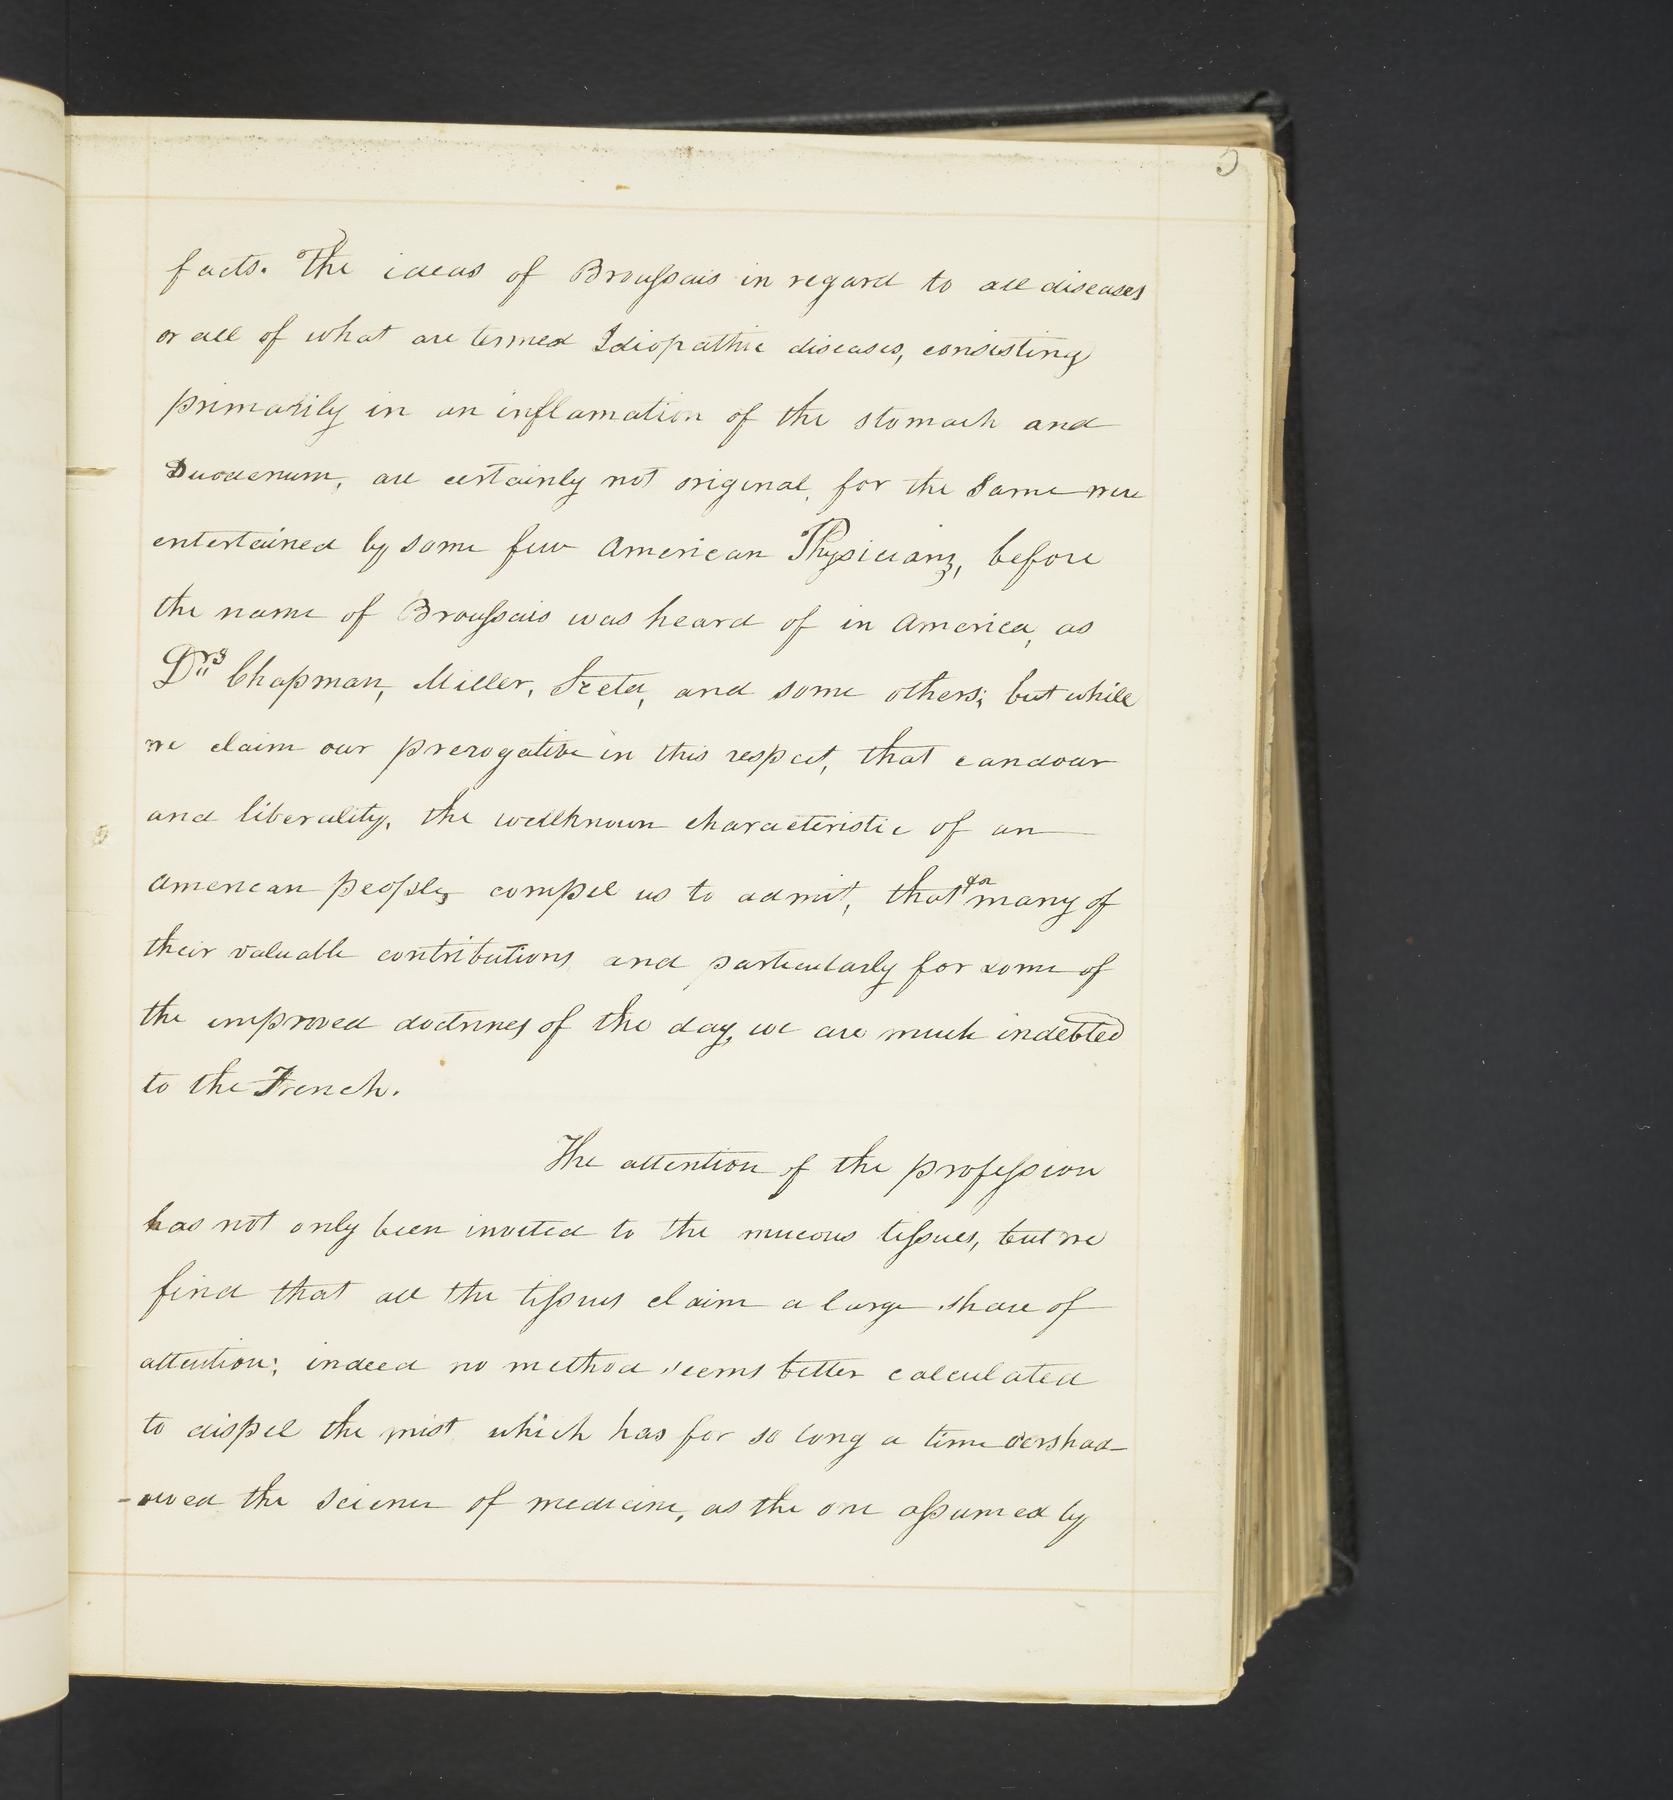 5
facts. The ideas of Broussais in regard to all diseases
or all of what are termed Idiopathic diseases, consisting
primarily in an inflamation of the stomach and
Duodenum, are certainly not original, for the same were
entertained by some few American Physicians, before
the name of Broussais was heard of in America, as
Drs Chapman, Miller, and some others; but while
we claim our prerogative in this respect, that candour
and liberality, the wellknown characteristic of an
American people, compel us to admit, that for many of
their valuable contributions and particularly for some of
the improved doctrines of the day, we are much indebted
to the French.
The attention of the profession
has not only been invited to the mucous tissues, but we
find that all the tissues claim a large share of
attention; indeed no method seems better calculated
to dispel the mist which has for so long a time overshad
-owed the science of medicine, as the one assumed by